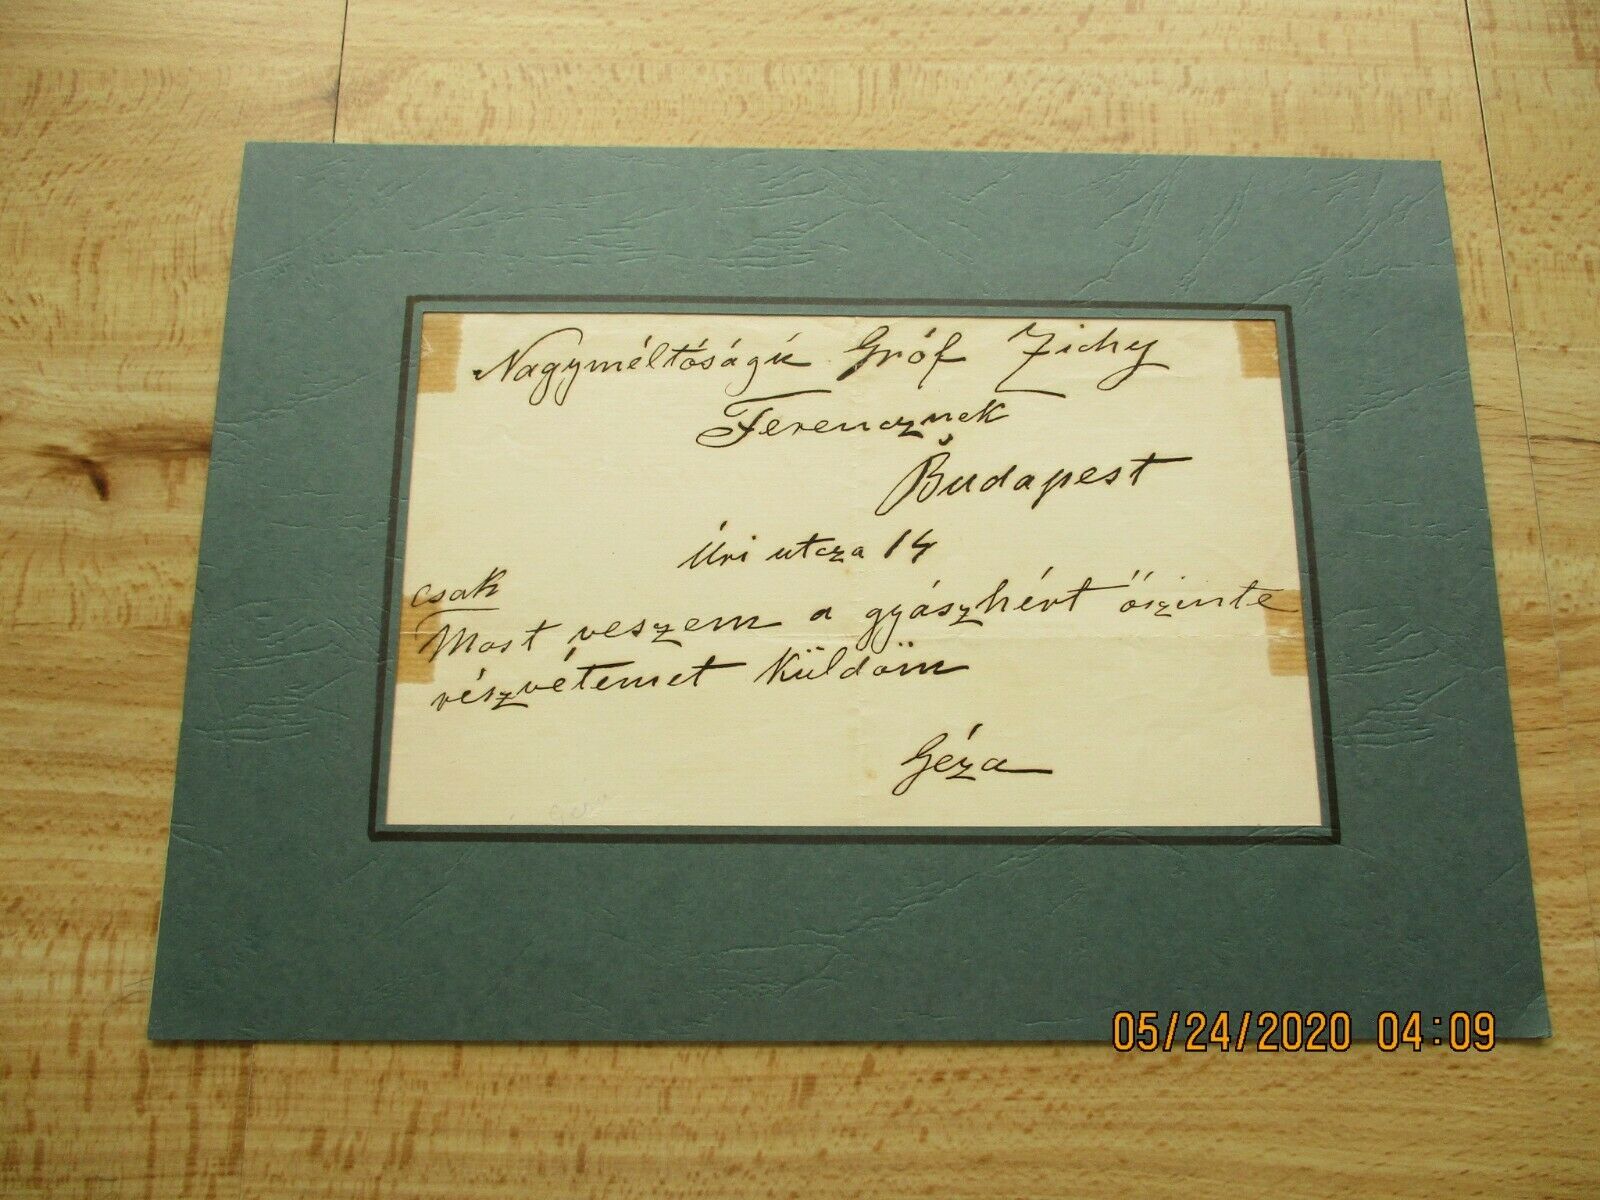 Nagyméltóságú Gróf Zichy
Ferencznek
Budapest
Úri utcza 14
csak
Most veszem a gyászhért őszinte
részvétemet küldöm
Géza
05/24/2020 04:09